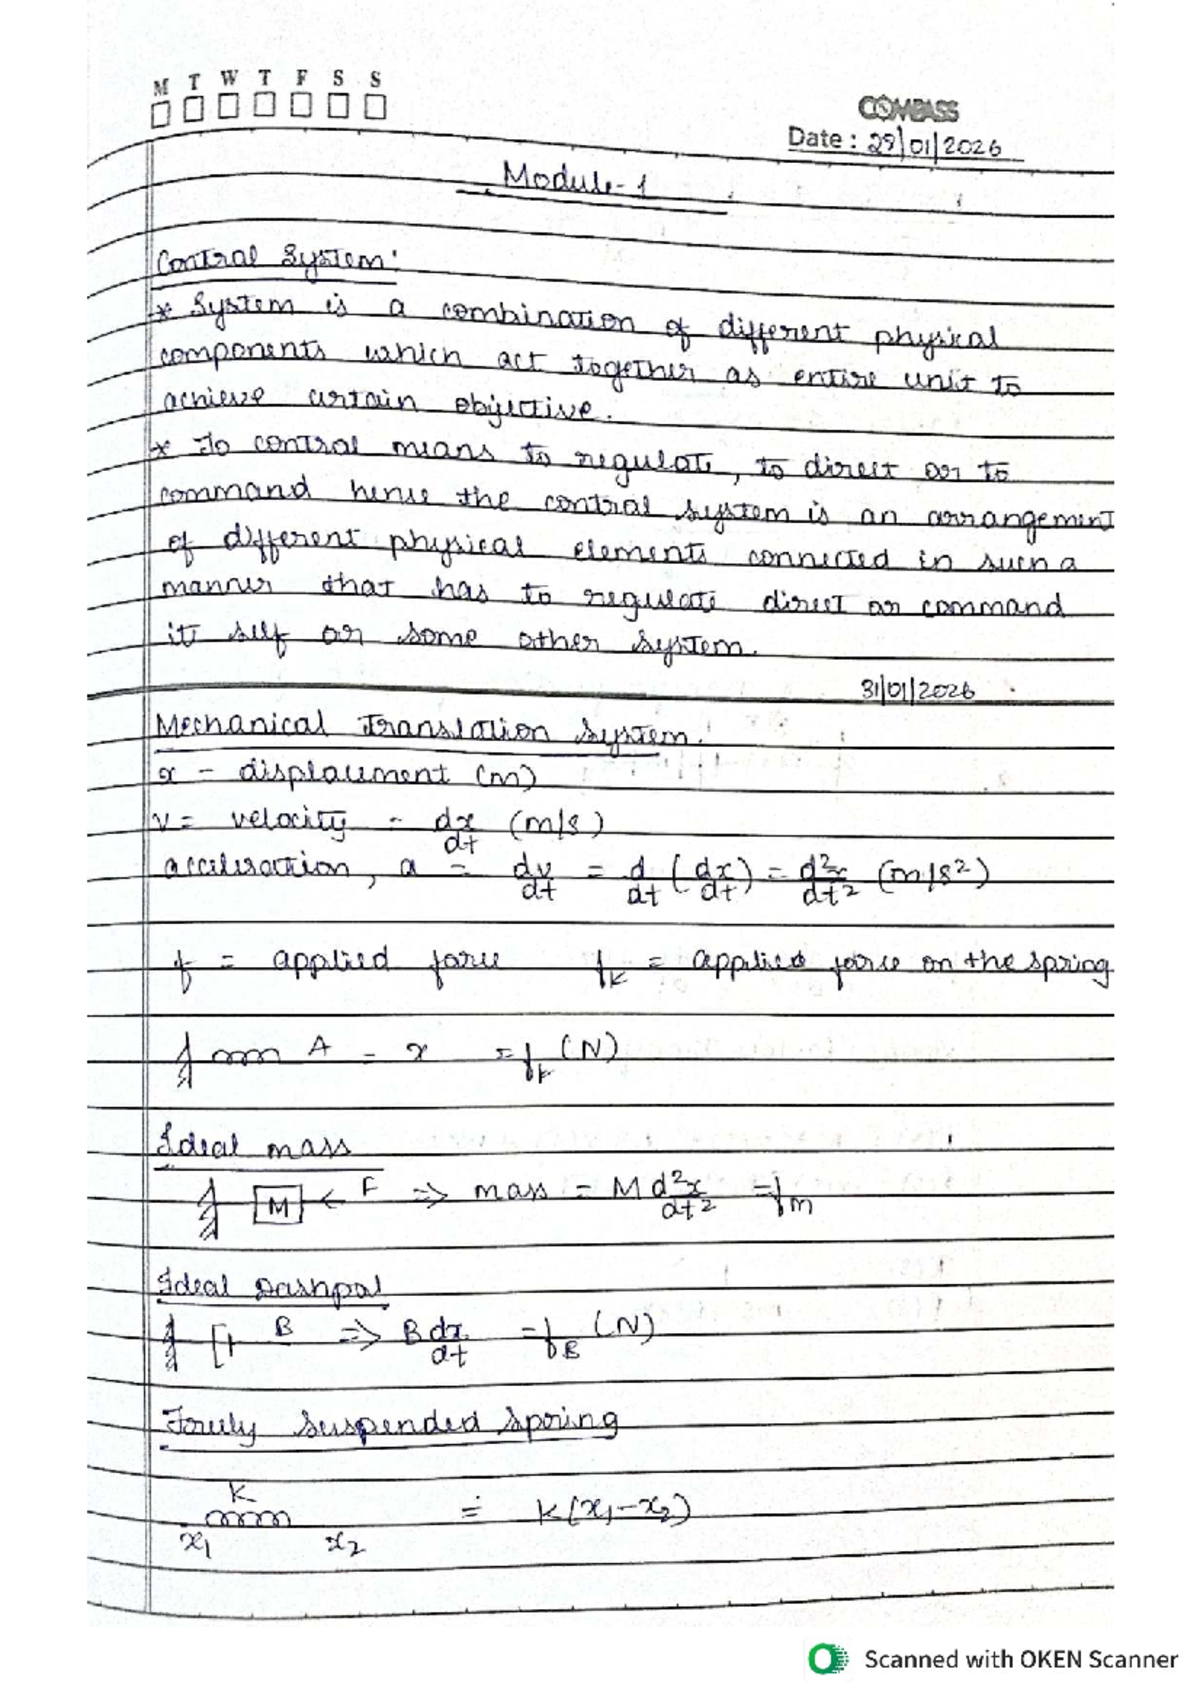 M T W T F S S
COMPASS
Date : 29/01/2026
Module-1
Control System:
* System is a combination of different physical
components which act together as entire unit to
achieve certain objective.
* To control means to regulate, to direct or to
command hence the control system is an arrangement
of different physical elements connected in such a
manner that has to regulate direct or command
it self or some other system.
31/01/2026
Mechanical Translation System.
x - displacement (m)
v = velocity - dx/dt (m/s)
acceleration, a = dv/dt = d/dt (dx/dt) = d²x/dt² (m/s²)
f = applied force fk = applied force on the spring
A = x = fk (N)
Ideal mass
M ← F ⇒ mass = M d²x/dt² = fm
Ideal Dashpot
B ⇒ B dx/dt = fB (N)
Freely Suspended Spring
K
= K(x₁-x₂)
x₁ x₂
Scanned with OKEN Scanner